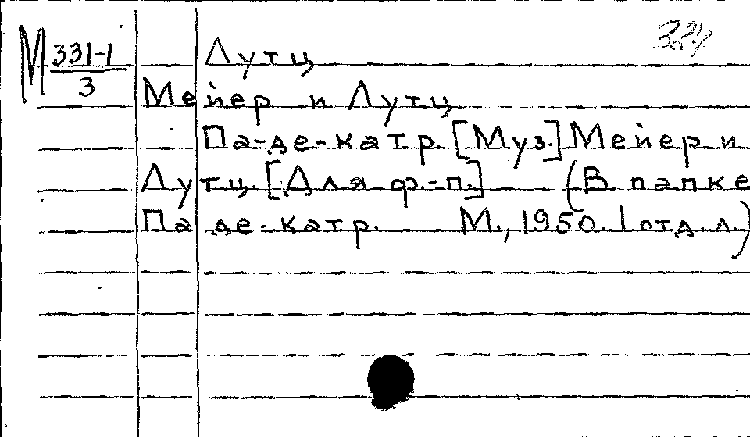 М 331-1
3
Лутц
Мейер и Лутц
Па-де-катр. [Муз.] Мейер и
Лутц. [Для ф.-п.] (В папке
Па де-катр. М., 1950. 1 отд. л.)